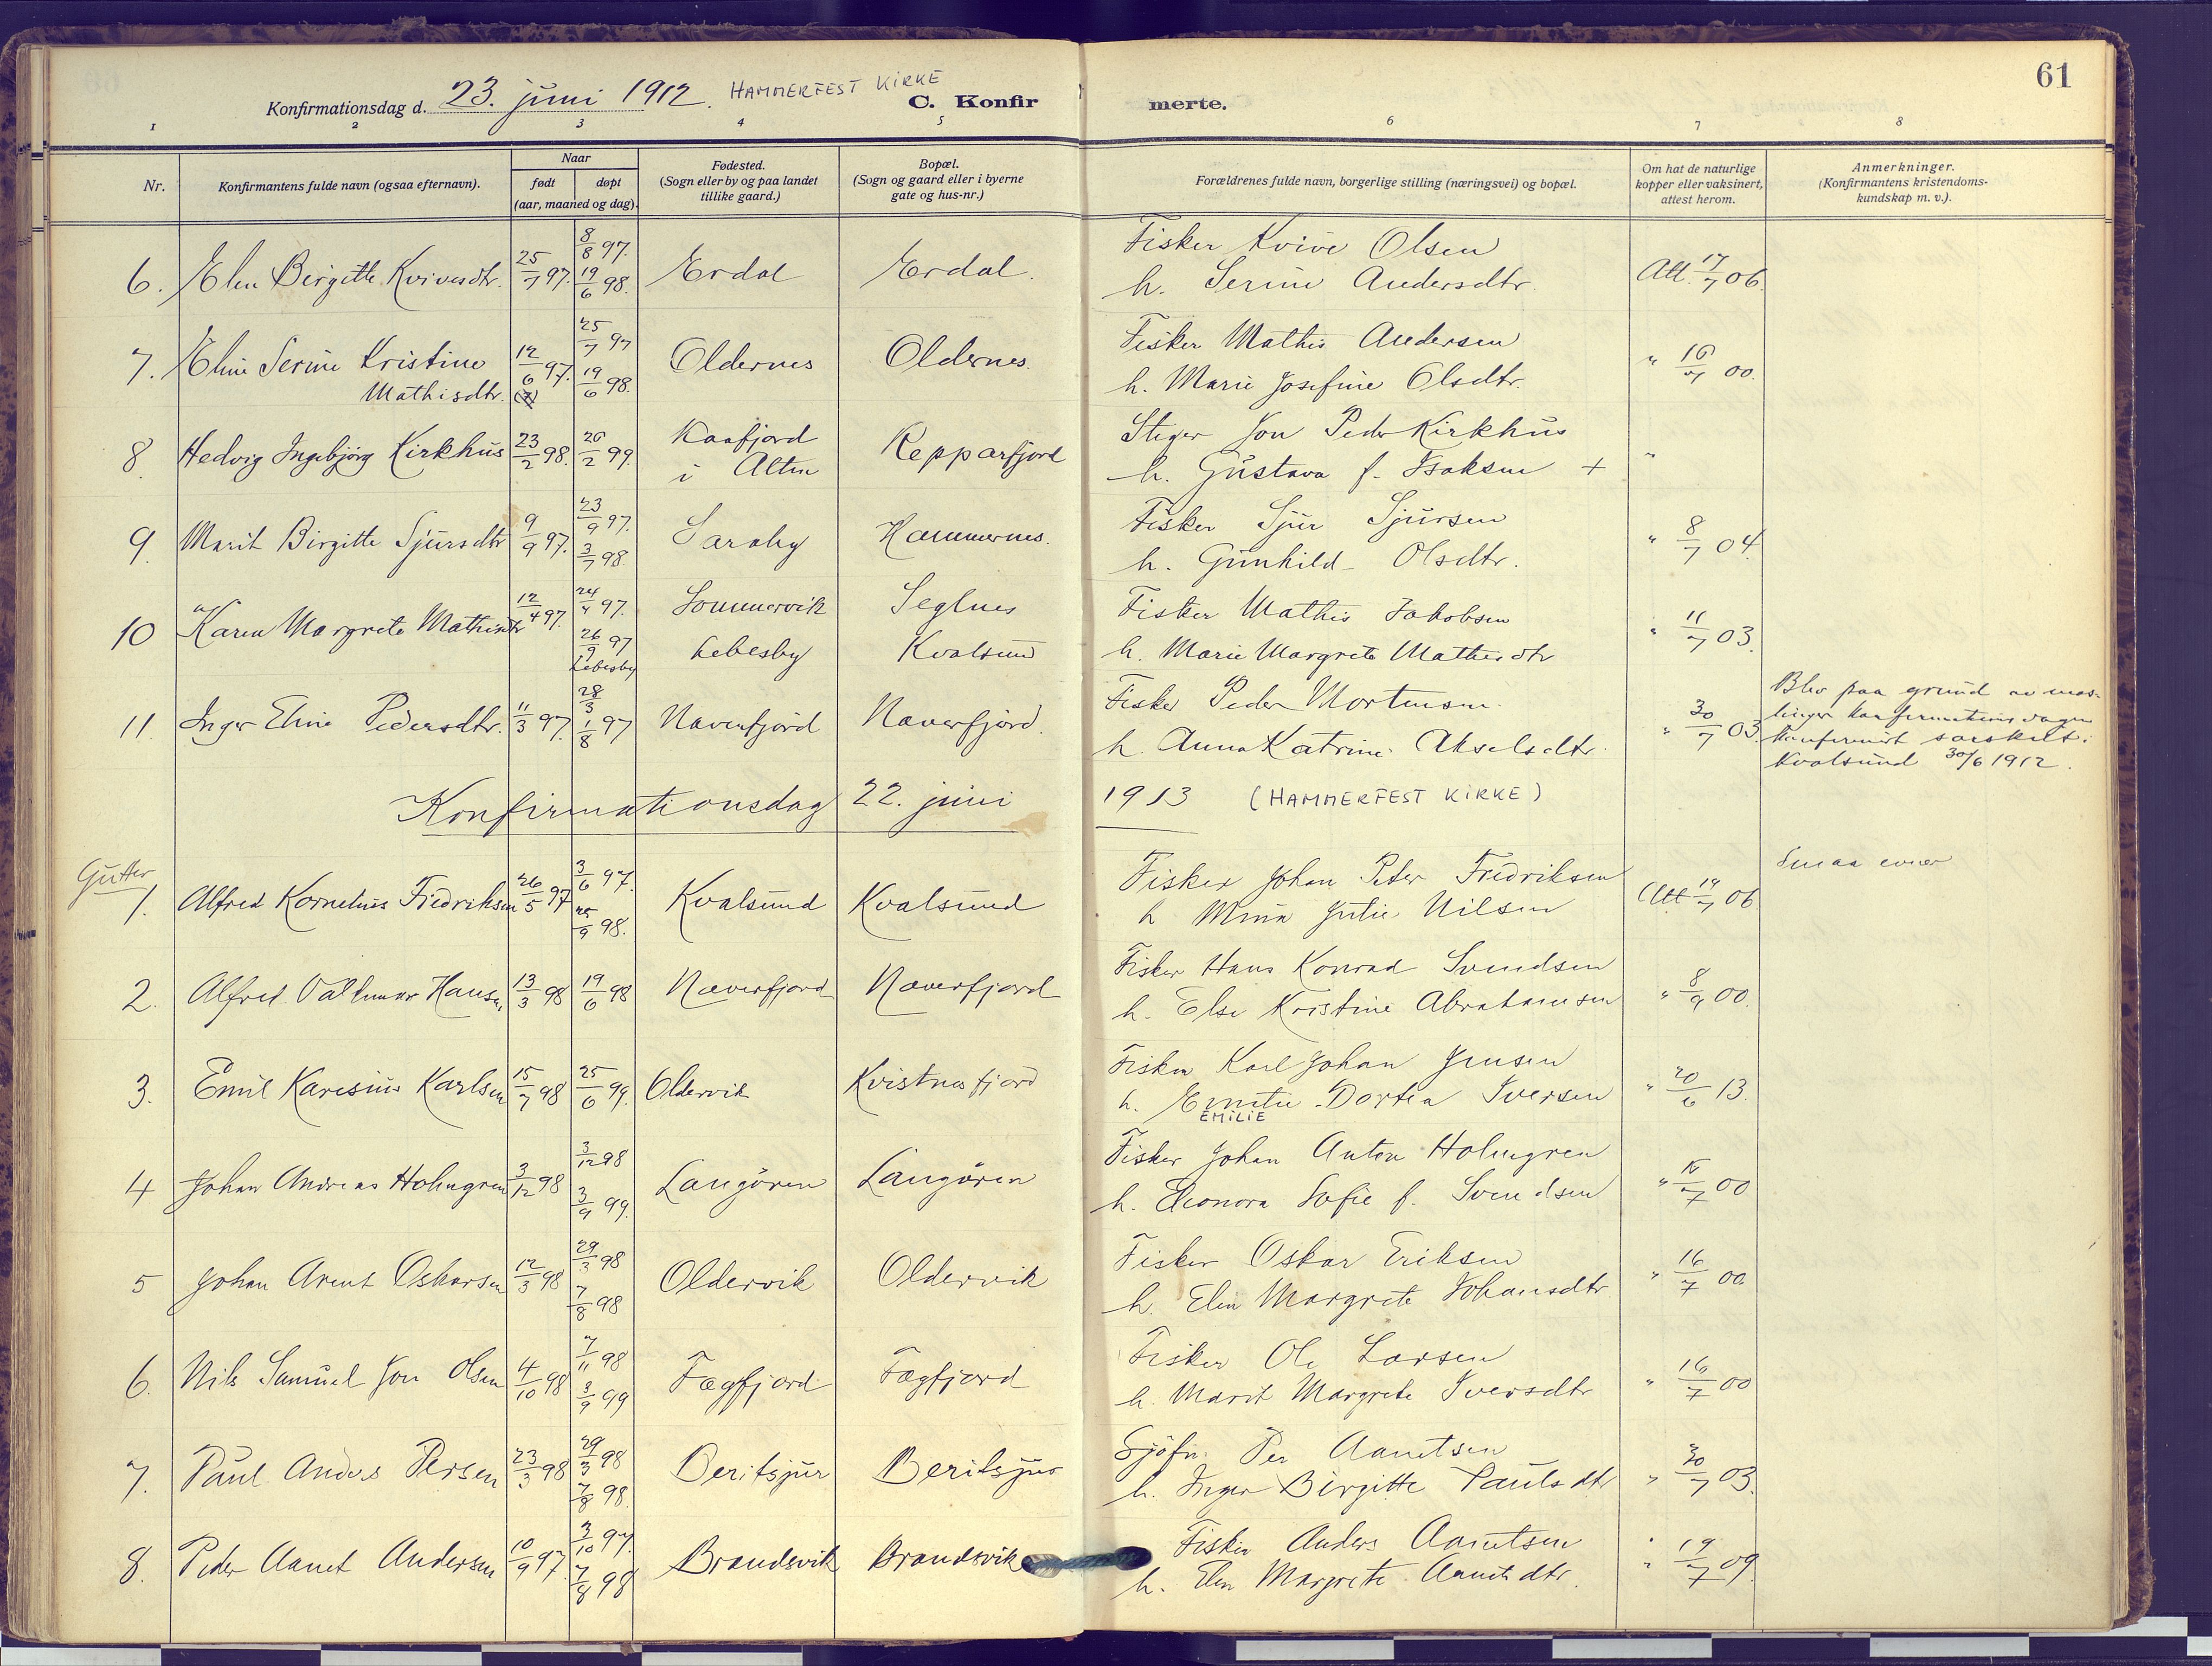 61
Konfirmationsdag d. 23. juni 1912. HAMMERFEST KIRKE
C. Konfirmerte.
1 2 3 4 5 6 7 8
Nr.
Konfirmantens fulde navn (ogsaa efternavn).
Naar
født døpt
(aar, maaned og dag).
Fødested.
(Sogn eller by og paa landet
tillike gaard.)
Bopæl.
(Sogn og gaard eller i byerne
gate og hus-nr.)
Forældrenes fulde navn, borgerlige stilling (næringsvei) og bopæl.
Om hat de naturlige
kopper eller vaksinert,
attest herom.
Anmerkninger.
(Konfirmantens kristendoms-
kundskap m. v.).
6. Elen Birgitte Kvivesdtr. 25/7 97. 8/8 97. 19/6 98. Erdal Erdal.
Fisker Kvive Olsen
h. Serine Andersdtr. Att. 17/7 06.
7. Eline Serine Kristine
Mathisdtr. 12/6 97. 25/7 97 19/6 98. Oldernes Oldernes.
Fisker Mathis Andersen
h. Marie Josefine Olsdtr. " 16/7 00.
8. Hedvig Ingebjørg Kirkhus 23/2 98. 26/2 99. Kaafjord
i Alten Repparfjord
Stiger Jon Peder Kirkhus
h. Gustava f. Isaksen + "
9. Marit Birgitte Sjursdtr 9/9 97. 23/9 97. 3/7 98. Saraby Hammernes.
Fisker Sjur Sjursen
h. Gunhild Olsdtr. " 8/7 04.
10 Karen Margrete Mathisdtr 12/4 97. 24/4 97. 26/9 97 Lebesby
Sommervik Seglnes
Lebesby Kvalsund
Fisker Mathis Jakobsen
h. Marie Margrete Mathisdtr " 11/7 03.
11. Inger Eline Pedersdtr. 11/3 97. 28/3 1/8 97 Naverfjord Naverfjord.
Fisker Peder Mortensen.
h. Anna Katrine Akselsdtr. " 30/7 03.
Blev paa grund av mæs-
linger konfirmationsdagen
konfirmert særskilt i
Kvalsund 30/6 1912.
Konfirmationsdag 22. juni 1913 (HAMMERFEST KIRKE)
Gutter
1. Alfred Kornelius Fredriksen 26/5 97 3/6 97. 25/9 98. Kvalsund Kvalsund
Fisker Johan Peter Fredriksen
h Mina Julie Nilsen Att 19/7 06. Smaa evner
2. Alfred Valdemar Hansen 13/3 98 19/6 98 Naverfjord Naverfjord
Fisker Hans Konrad Svendsen
h. Else Kristine Abrahamsen " 8/9 00.
3. Emil Karesius Karlsen 15/7 98 25/6 99. Oldervik Kvistnesfjord
Fisker Karl Johan Jensen
h. Emilie Dortea Iversen " 20/6 13.
EMILIE
4 Johan Andreas Holmgren 3/12 98 3/12 98 3/9 99. Langören Langören
Fisker Johan Anton Holmgren
h. Eleonora Sofie f. Svendsen " 16/7 00
5 Johan Arent Oskarsen 12/3 98 29/3 98 7/8 98 Oldervik Oldervik
Fisker Oskar Eriksen
h. Elen Margrete Johansdtr " 16/7 00
6. Nils Samuel Jon Olsen 4/10 98 7/11 98 3/9 99 Fægfjord Fægfjord
Fisker Ole Larsen
h. Marit Margrete Iversdtr " 16/7 00
7. Paul Anders Persen 23/3 98 29/3 98 7/8 98. Beritsjur Beritsjur
Sjöfin Per Aamtsen
h. Inger Birgitte Paulsdtr " 30/7 03.
8. Peder Aamt Andersen 10/9 97. 3/10 97. 7/8 98 Brandsvik Brandsvik
Fisker Anders Aamtsen
h. Elen Margrete Aamtsdtr. " 19/7 09.